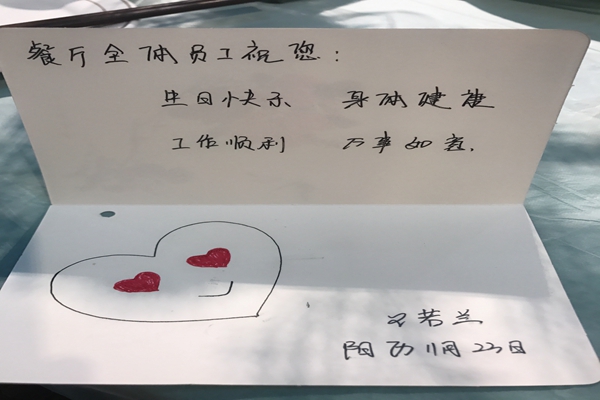 餐厅全体员工祝您：
生日快乐 身体健康
工作顺利 万事如意.
若兰
阳历11月23日